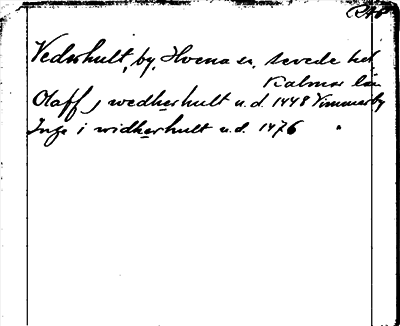 RAP
Vederhult, by, Hvena sn, Sevede hd.
Kalmar län
Olaff j wedherhult u.d. 1448 Vimmerby
Inge i widherhult u.d. 1476 "